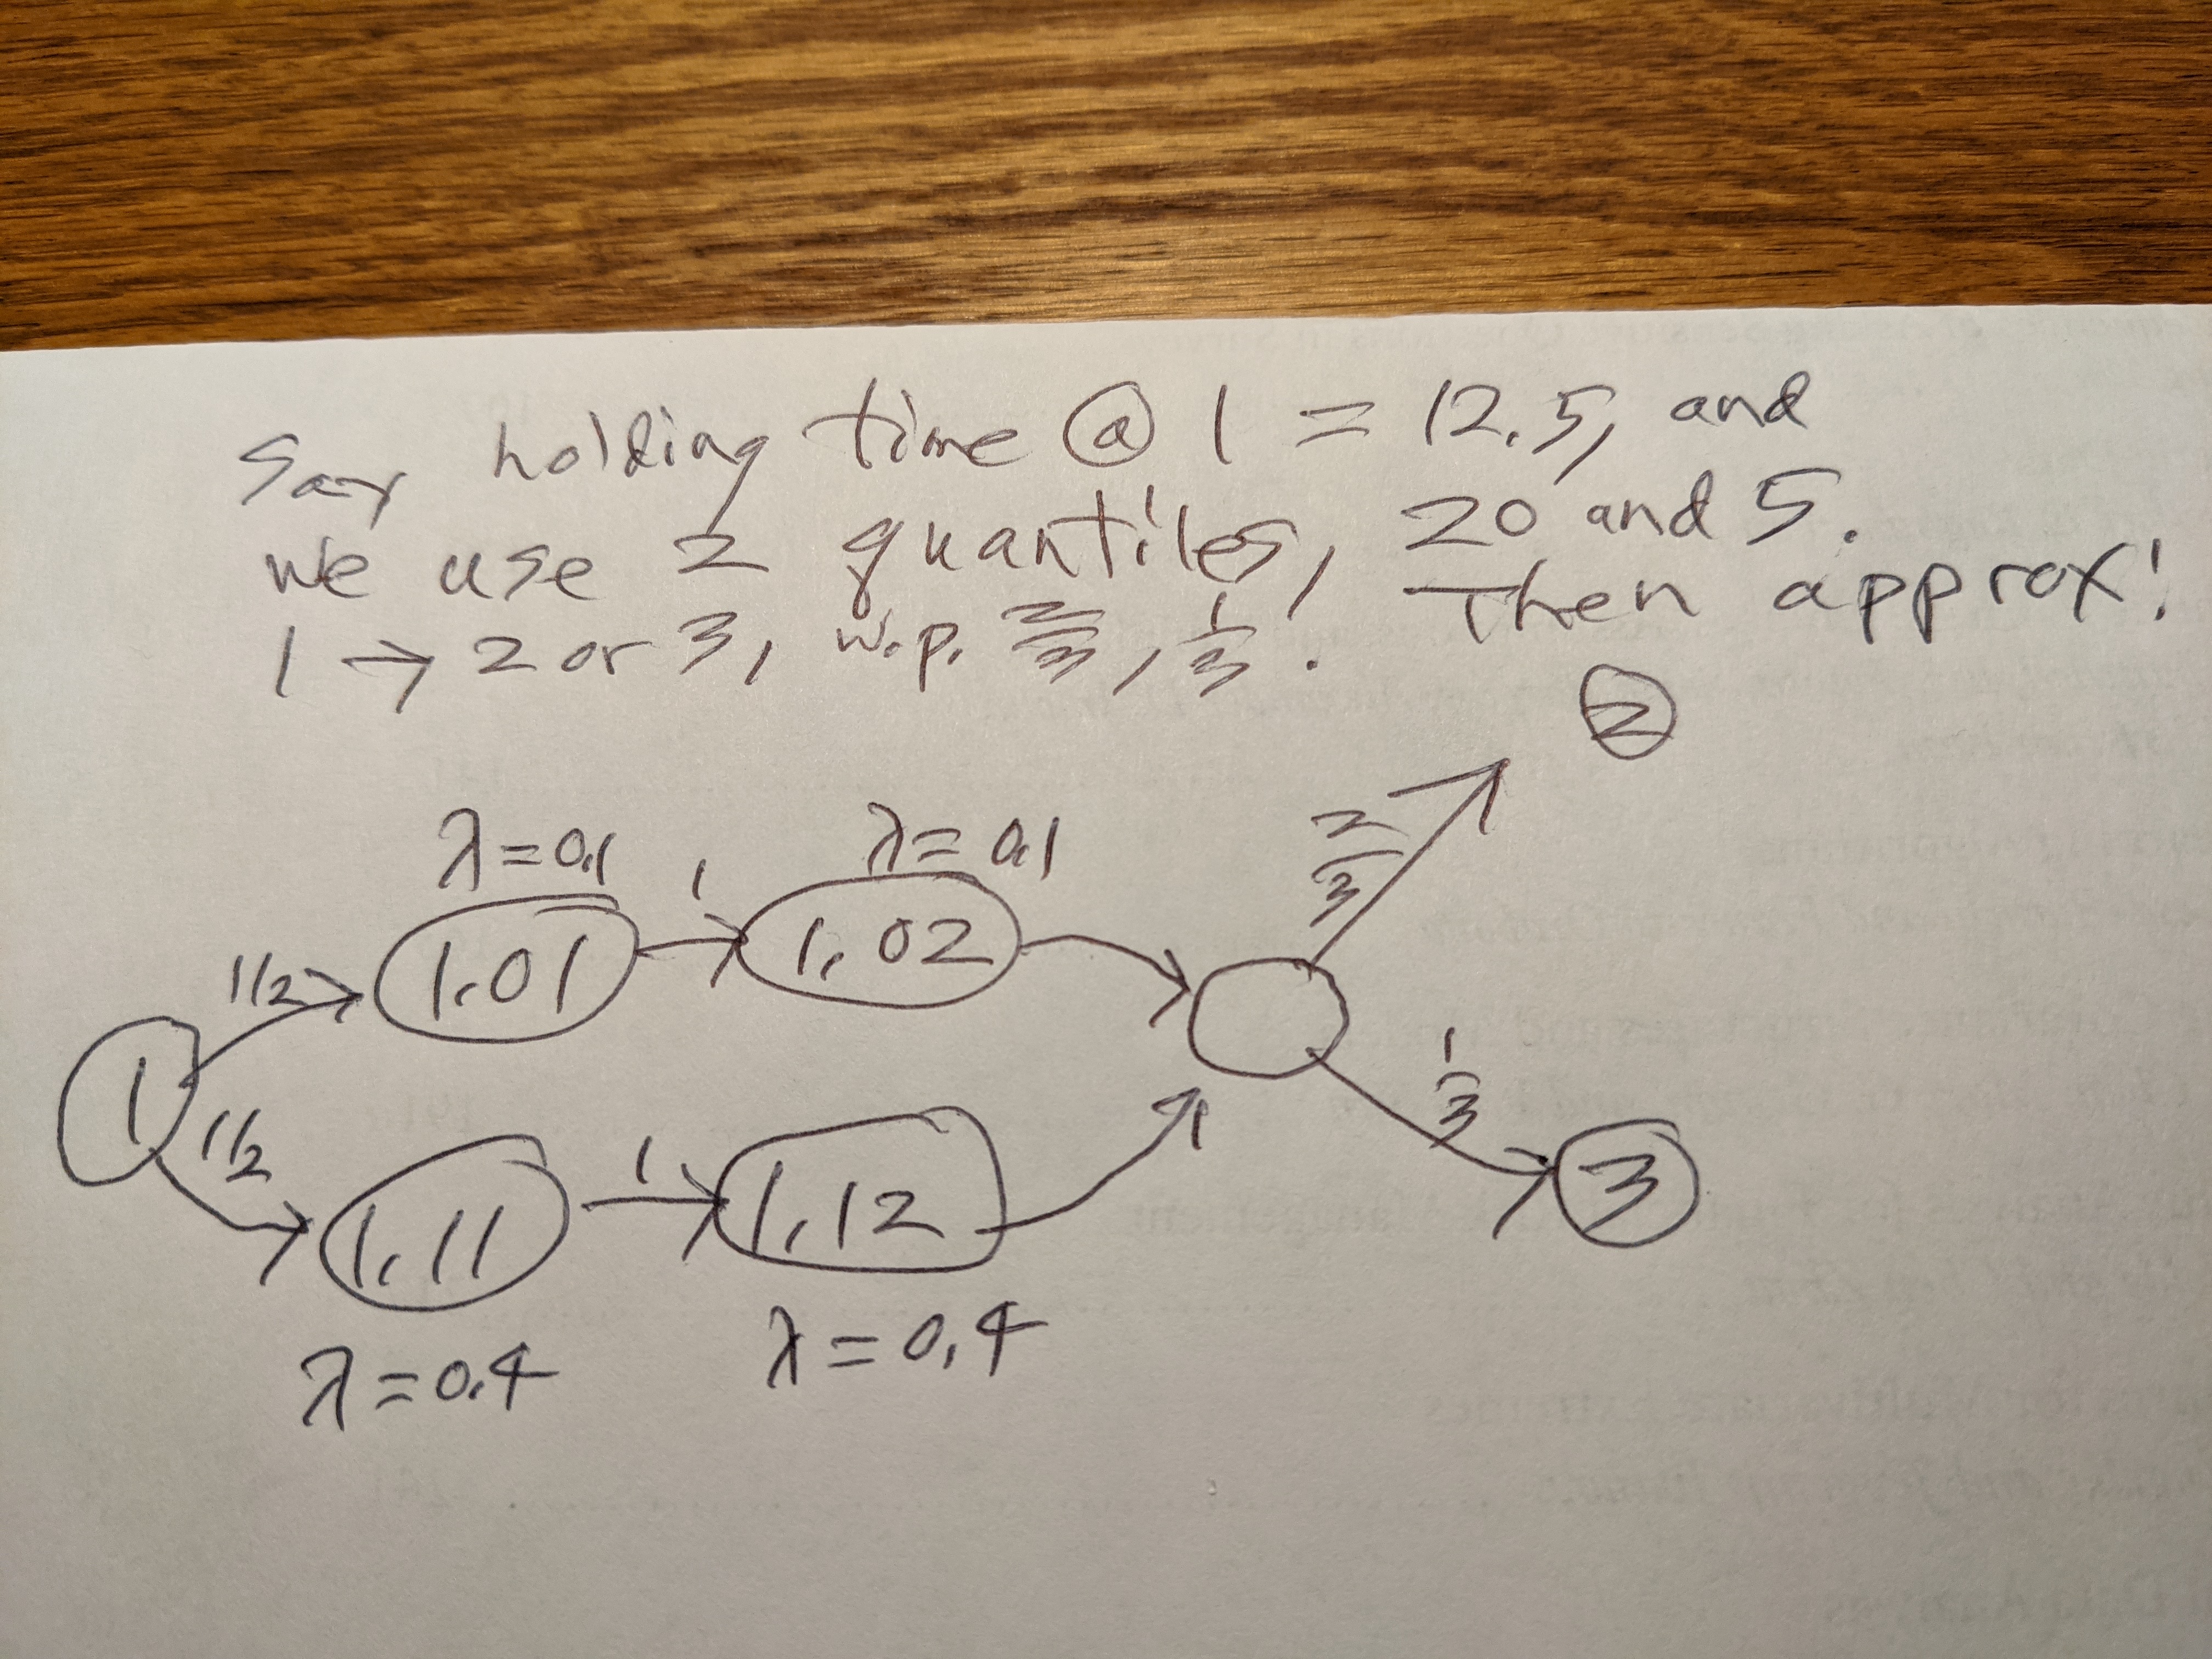 Say holding time @ 1 = 12.5, and
we use 2 quantiles, 20 and 5.
1 → 2 or 3, w.p. 2/3, 1/3. Then approx!
2
λ=0.1 1 λ=0.1 2/3
1/2 1.01 1.02
1 1/3
1/2 1 3
1.11 1.12
λ=0.4 λ=0.4